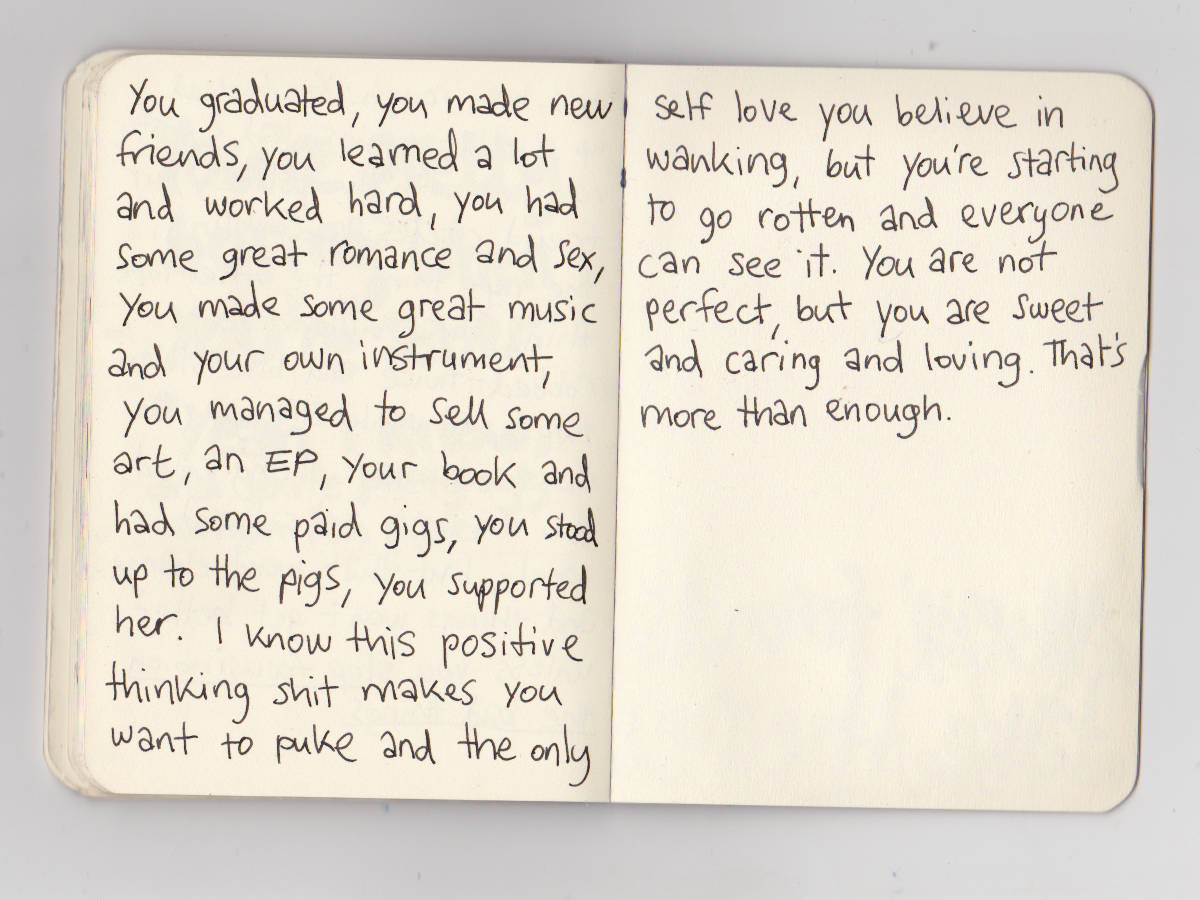 You graduated, you made new
friends, you learned a lot
and worked hard, you had
some great romance and sex,
you made some great music
and your own instrument,
you managed to sell some
art, an EP, your book and
had some paid gigs, you stood
up to the pigs, you supported
her. I know this positive
thinking shit makes you
want to puke and the only
self love you believe in
wanking, but you're starting
to go rotten and everyone
can see it. You are not
perfect, but you are sweet
and caring and loving. That's
more than enough.